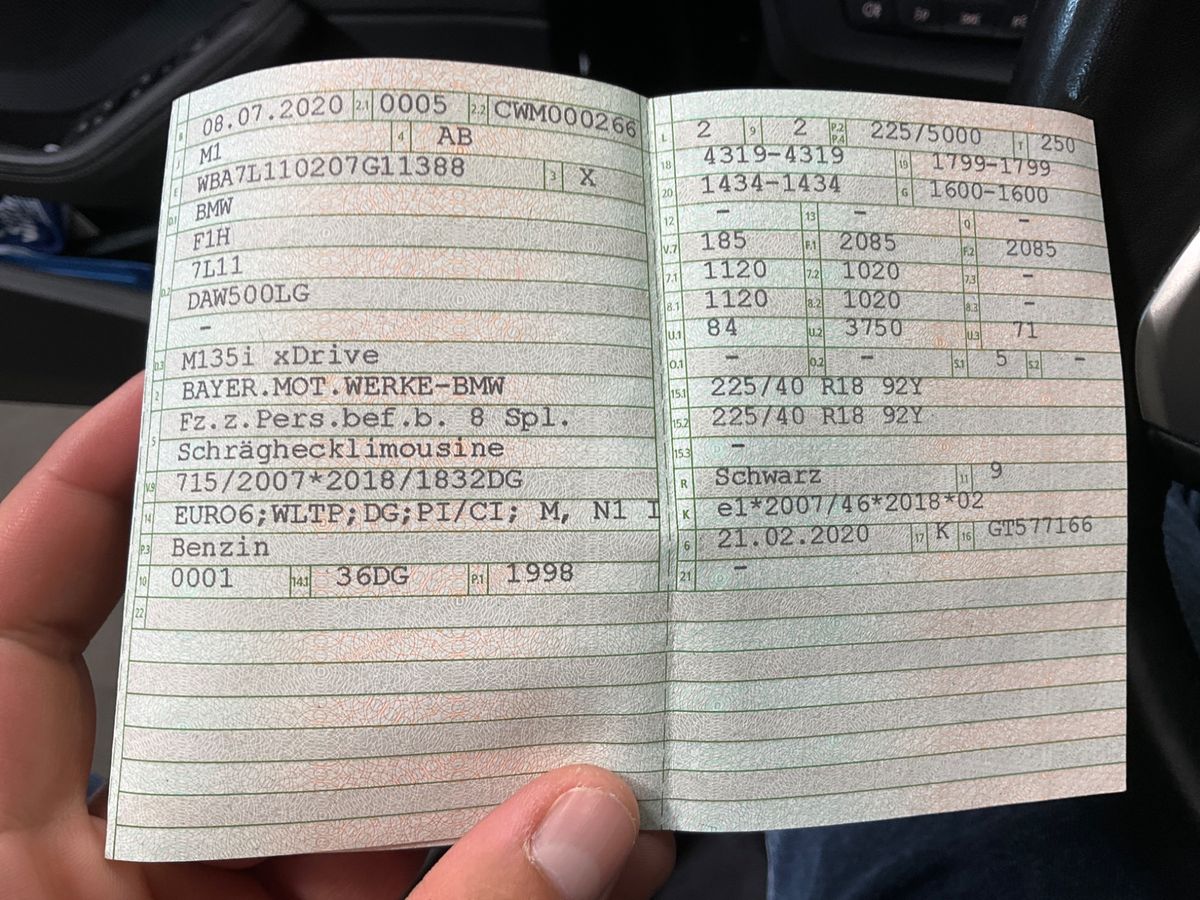 B 08.07.2020 2.1 0005 2.2 CWM000266
J M1 4 AB
E WBA7L110207G11388 3 X
D.1 BMW
F1H
D.2 7L11
DAW500LG
-
D.3 M135i xDrive
2 BAYER.MOT.WERKE-BMW
5 Fz.z.Pers.bef.b. 8 Spl.
Schräghecklimousine
V.9 715/2007*2018/1832DG
14 EURO6;WLTP;DG;PI/CI; M, N1 I
P.3 Benzin
10 0001 14.1 36DG P.1 1998
22
L 2 9 2 P.2 P.4 225/5000 T 250
18 4319-4319 19 1799-1799
20 1434-1434 G 1600-1600
12 - 13 - Q -
V.7 185 F.1 2085 F.2 2085
7.1 1120 7.2 1020 7.3 -
8.1 1120 8.2 1020 8.3 -
U.1 84 U.2 3750 U.3 71
O.1 - O.2 - S.1 5 S.2 -
15.1 225/40 R18 92Y
15.2 225/40 R18 92Y
15.3 -
R Schwarz 11 9
K e1*2007/46*2018*02
6 21.02.2020 17 K 16 GT577166
21 -